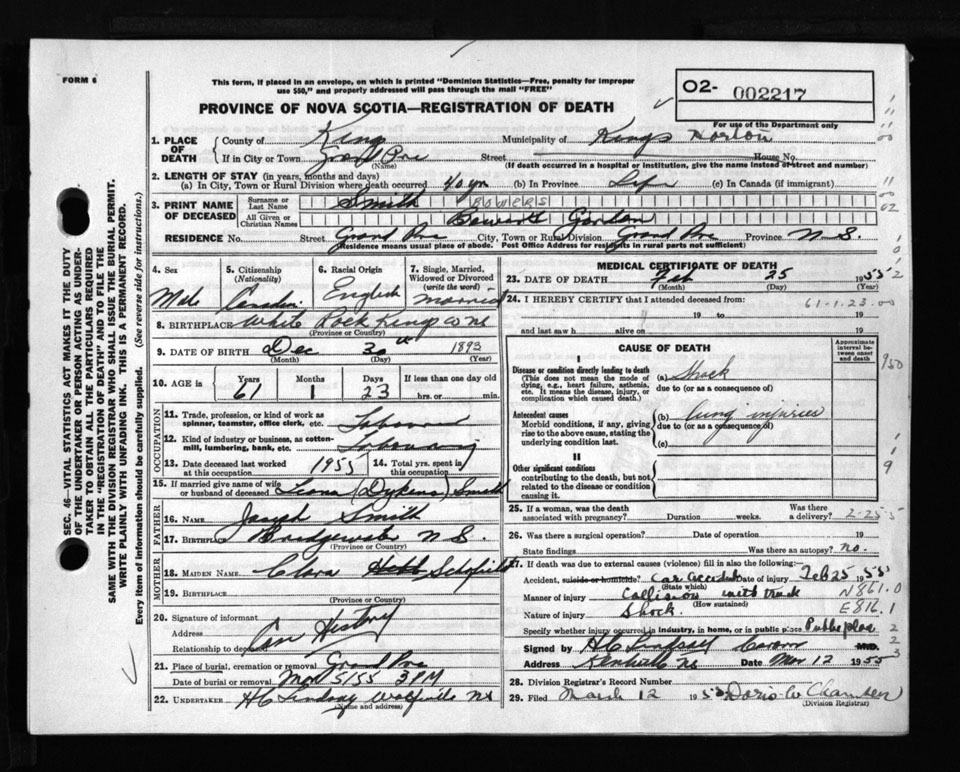 FORM 6
This form, if placed in an envelope, on which is printed "Dominion Statistics—Free, penalty for improper
use $50," and properly addressed will pass through the mail "FREE"
PROVINCE OF NOVA SCOTIA—REGISTRATION OF DEATH
O2- 002217
For use of the Department only
1. PLACE OF DEATH
County of Kings Municipality of Kings Horton
If in City or Town Grand Pre Street House No.
(Name) (If death occurred in a hospital or institution, give the name instead of street and number)
2. LENGTH OF STAY (in years, months and days)
(a) In City, Town or Rural Division where death occurred 40 yrs (b) In Province Life (c) In Canada (if immigrant)
3. PRINT NAME OF DECEASED
Surname or Last Name Smith BOWERS
All Given or Christian Names Gordon
RESIDENCE No. Street Grand Pre City, Town or Rural Division Grand Pre Province N S.
(Residence means usual place of abode. Post Office Address for residents in rural parts not sufficient)
4. Sex Male
5. Citizenship (Nationality)
6. Racial Origin English
7. Single, Married, Widowed or Divorced (write the word) married
8. BIRTHPLACE White Rock Kings Co NS
(Province or Country)
9. DATE OF BIRTH Dec 30th 1893
(Month) (Day) (Year)
10. AGE in Years Months Days If less than one day old
61 1 23 hrs. or min.
OCCUPATION
11. Trade, profession, or kind of work as spinner, teamster, office clerk, etc.
12. Kind of industry or business, as cotton-mill, lumbering, bank, etc. Labouring
13. Date deceased last worked at this occupation 1955 14. Total yrs. spent in this occupation
15. If married give name of wife or husband of deceased Leona (Dykens) Smith
FATHER
16. NAME Joseph Smith
17. BIRTHPLACE Bridgewater N S.
(Province or Country)
MOTHER
18. MAIDEN NAME Clara Schofield
19. BIRTHPLACE
(Province or Country)
20. Signature of informant
Address
Relationship to deceased
21. Place of burial, cremation or removal Grand Pre
Date of burial or removal Mar 5/55 3 PM
22. UNDERTAKER HC Lindsay Wolfville NS
(Name and address)
MEDICAL CERTIFICATE OF DEATH
23. DATE OF DEATH Feb 25 1955
(Month) (Day)
24. I HEREBY CERTIFY that I attended deceased from: 61-1-23-00
19 to 19
and last saw h alive on 19
CAUSE OF DEATH
Approximate interval between onset and death
I
Disease or condition directly leading to death
(This does not mean the mode of dying, e.g., heart failure, asthenia, etc. It means the disease, injury, or complication which caused death.)
(a) Shock
due to (or as a consequence of)
Antecedent causes
Morbid conditions, if any, giving rise to the above cause, stating the underlying condition last.
(b) lung injuries
due to (or as a consequence of)
(c)
II
Other significant conditions
contributing to the death, but not related to the disease or condition causing it.
25. If a woman, was the death associated with pregnancy? Duration weeks. Was there a delivery? 2-25-5
26. Was there a surgical operation? Date of operation 19
State findings Was there an autopsy? No.
27. If death was due to external causes (violence) fill in also the following:
Accident, suicide or homicide? Car accident Date of injury Feb 25 1955
(State which)
Manner of injury Collision with truck N861.0
(How sustained)
Nature of injury Shock. E816.1
Specify whether injury occurred in industry, in home, or in public place Public place
Signed by HC Lindsay Coroner M.D.
Address Kentville NS Date Mar 12 1955
28. Division Registrar's Record Number
29. Filed March 12 195 Doris
(Division Registrar)
SEC. 46—VITAL STATISTICS ACT MAKES IT THE DUTY
OF THE UNDERTAKER OR PERSON ACTING AS UNDER-
TAKER TO OBTAIN ALL THE PARTICULARS REQUIRED
IN THE "REGISTRATION OF DEATH" AND TO FILE THE
SAME WITH THE DIVISION REGISTRAR WHO SHALL ISSUE THE BURIAL PERMIT.
WRITE PLAINLY WITH UNFADING INK. THIS IS A PERMANENT RECORD.
Every item of information should be carefully supplied. (See reverse side for instructions.)